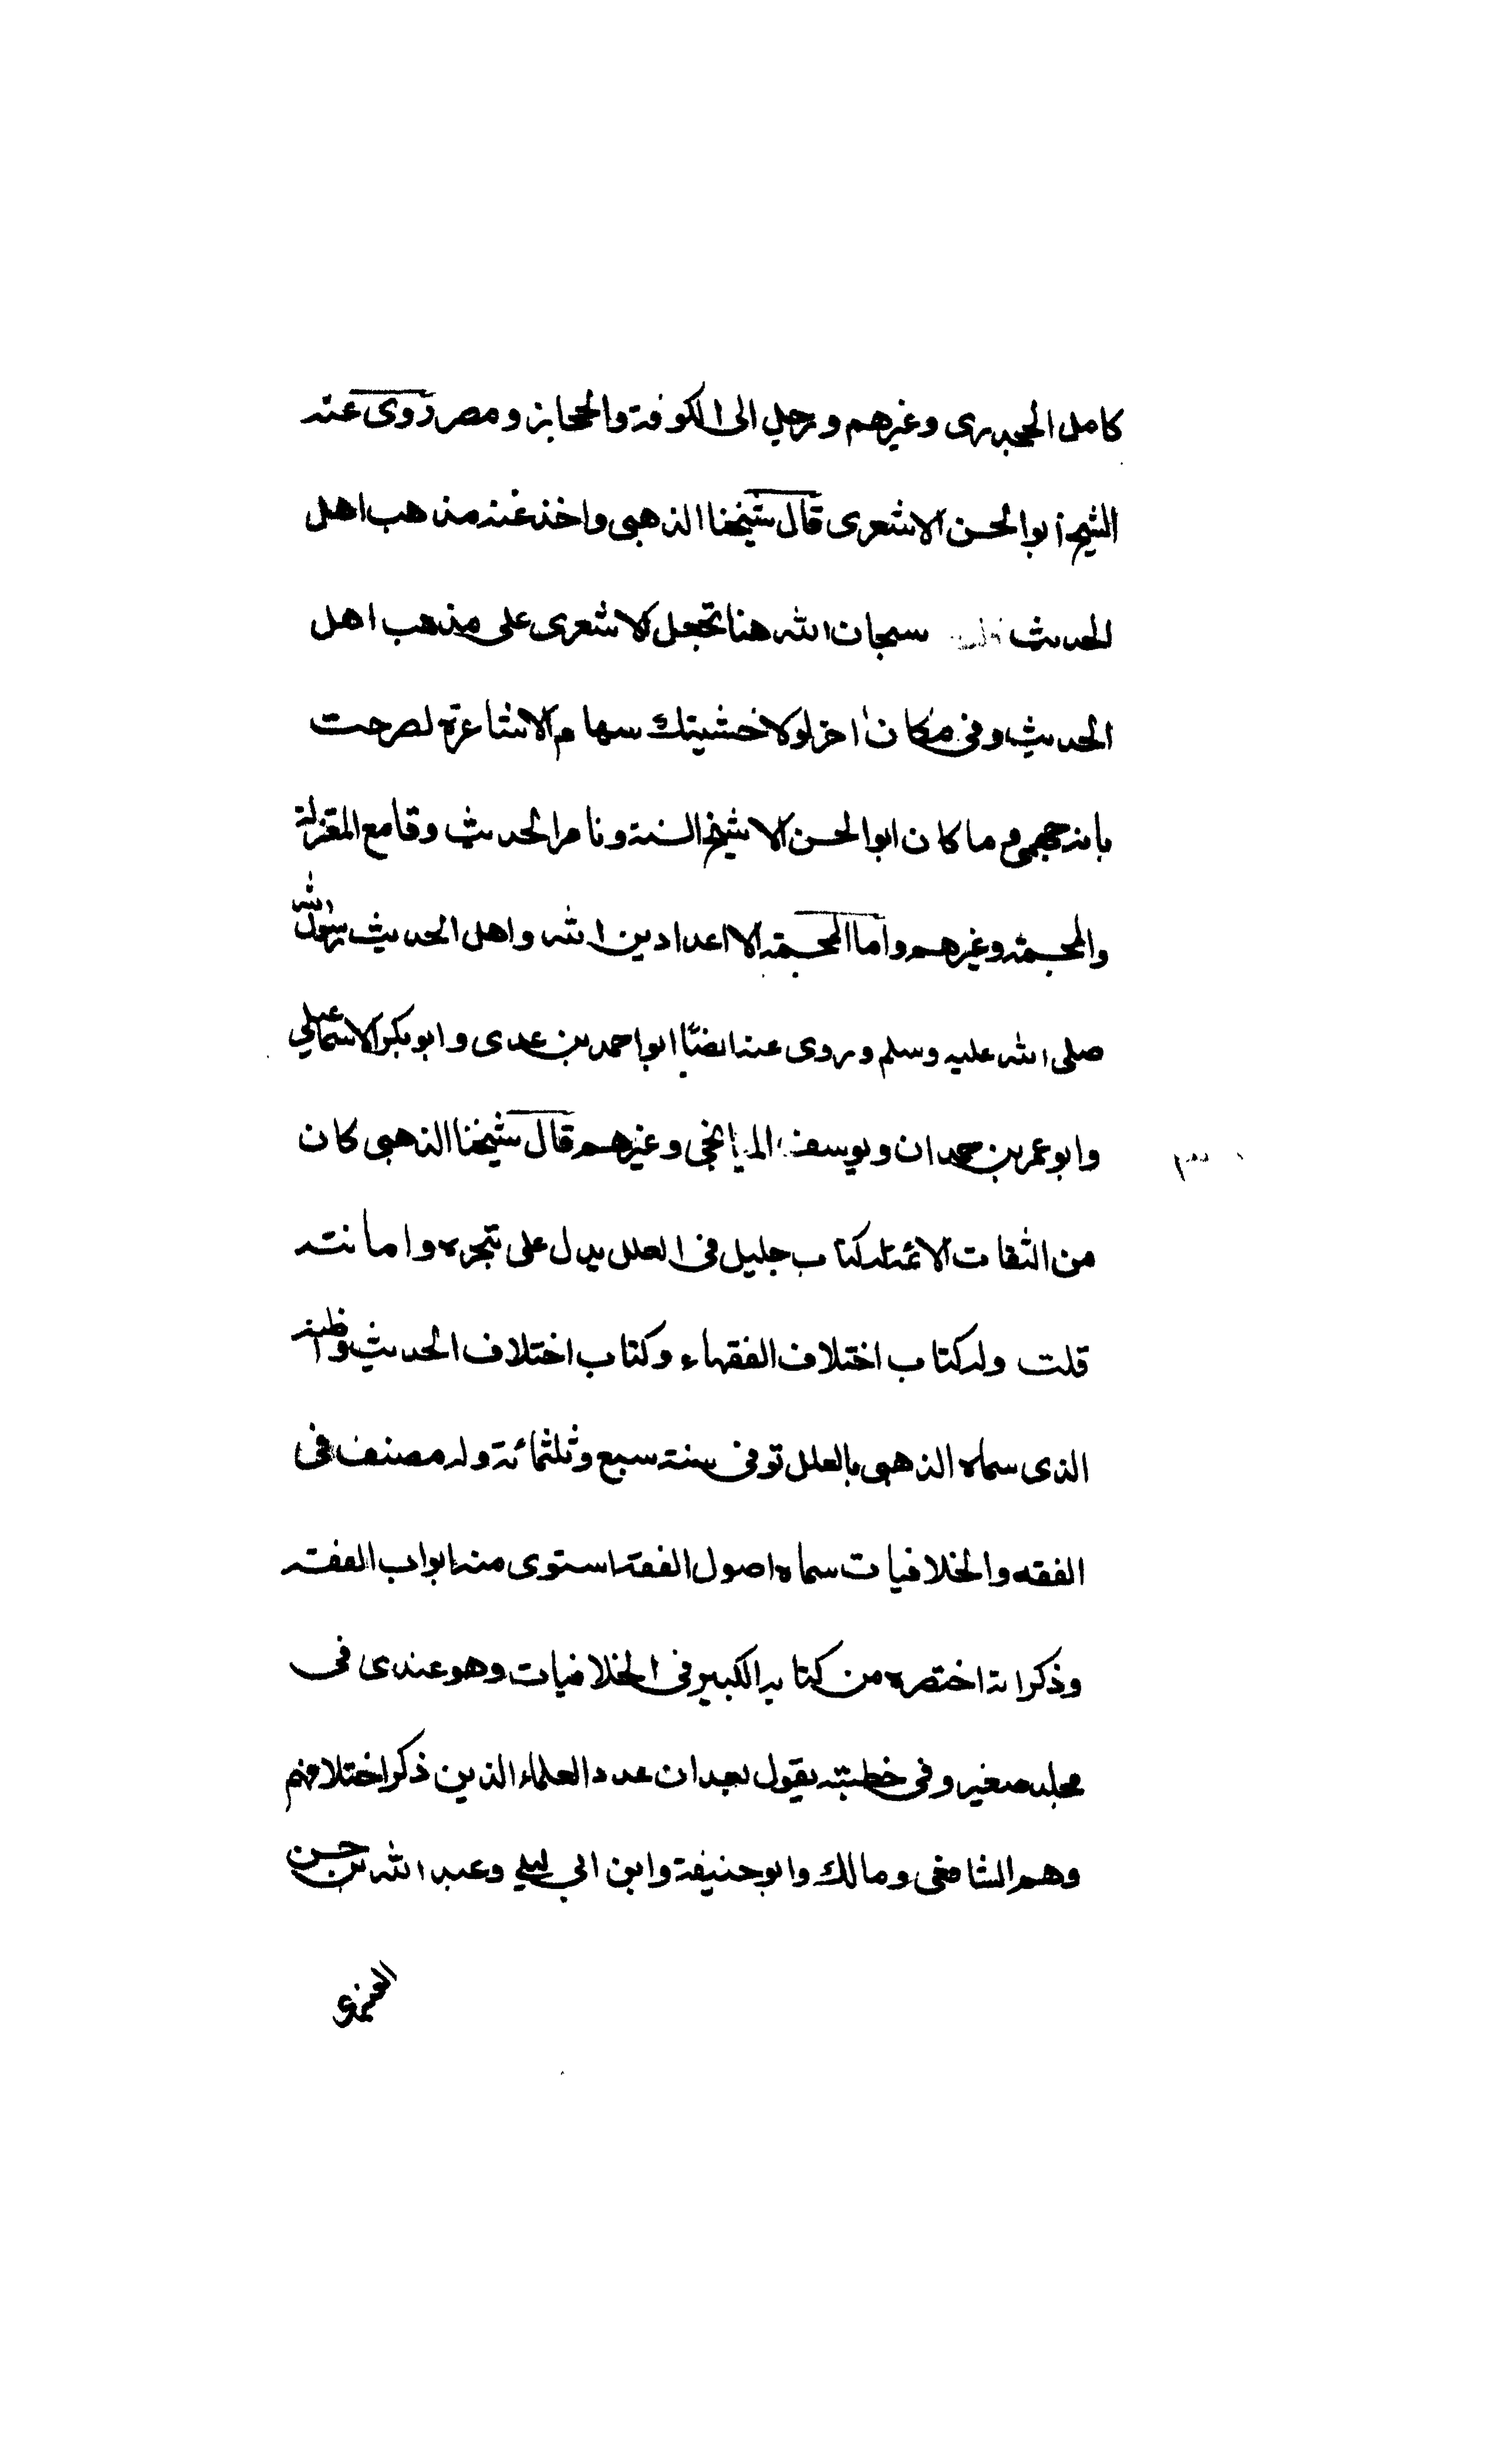 كامل الجحدرى وغيرهم ورحل الى الكوفة والحجاز ومصر روى عنه
الشيخ ابو الحسن الاشعرى قال شيخنا الذهبى واخذ عنه مذهب اهل
الحديث قلت سبحان الله هنا تجعل الاشعرى على مذهب اهل
الحديث وفى مكان اخر لولا خشيتك سهام الاشاعرة لصرحت
بانه جهمى وما كان ابو الحسن الا شيخ السنة وناصر الحديث وقامع المعتزلة
والمجسمة وغيرهم واما المجسمة الا اعدا دين الله واهل الحديث رسول الله
صلى الله عليه وسلم وروى عنه ايضًا ابو احمد بن عدى وابو بكر الاسماعيلي
وابو عمر بن حمدان ويوسف الميانجى وغيرهم قال شيخنا الذهبى كان
من الثقات الائمة له كتاب جليل فى العلل يدل على تبحره وامامته
قلت وله كتاب اختلاف الفقهاء وكتاب اختلاف الحديث واظنه
الذى سماه الذهبى بالعلل توفى سنة سبع وثلثمائة وله مصنف فى
الفقه والخلافيات سماه اصول الفقه استوى منه ابواب الفقه
وذكر انه اختصره من كتابه الكبير فى الخلافيات وهو عندى فى
مجلد صغير وفى خطبته يقول بعد ان عدد العلماء الذين ذكر اختلافهم
وهم الشافعى ومالك وابو حنيفة وابن ابي ليلي وعبد الله بن حسن